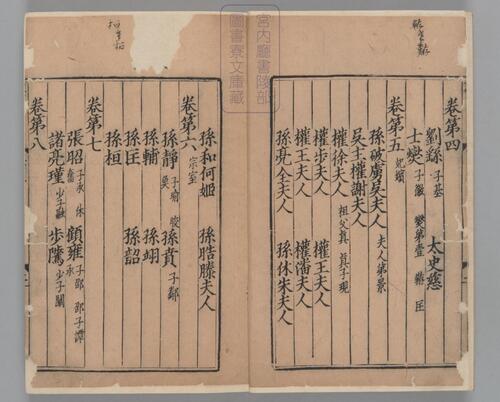 卷第四
劉繇 子基 太史慈
士燮 子徽 燮弟壹 䵋 匡
卷第五 妃嬪
孫破虜吳夫人 夫人弟景
吳主權謝夫人
權徐夫人 祖父真 真子琨
權步夫人 權王夫人
權王夫人 權潘夫人
孫亮全夫人 孫休朱夫人
宮内廳書陵部
圖書寮文庫藏
孫和何姬 孫皓滕夫人
卷第六 宗室
孫靜 子瑜 皎 奐 孫賁 子鄰
孫輔 孫翊
孫匡 孫韶
孫桓
卷第七
張昭 子承 休 奮 顧雍 子邵 邵子譚 承
諸葛瑾 少子融 步騭 少子闡
卷第八